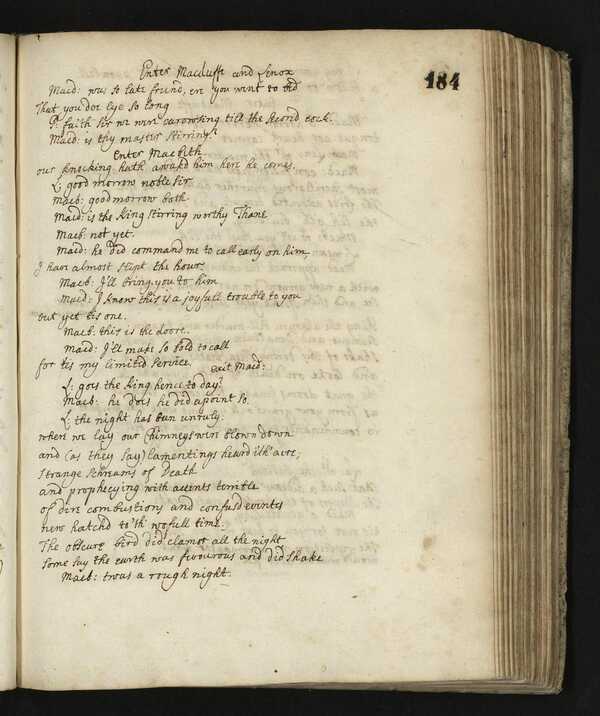 184
Enter Macduffe and Lenox
Macd: was so late friend, ere you went to bed
That you doe lye so long
P. faith sir we were carowsing till the second cock.
Macd: is thy master stirring?
Enter Macbeth
our knocking hath awakd him here he comes.
L: good morrow noble sir
Macb: good morrow both
Macd: is the King stirring worthy Thane
Macb: not yet.
Macd: he did command me to call early on him
I have almost slipt the hour.
Macb: I'll bring you to him
Macd: I know this is a joyfull trouble to you
but yet tis one.
Macb. this is the doore.
Macd: I'll make so bold to call
for tis my limited service. exit Macd:
L: goes the King hence to day?
Macb: he does he did apoint so.
L: the night has been unruly.
where we lay our Chimneys were blown down
and (as they say) lamentings heard ith' aire,
strange schreams of Death
and prophecying with accents terrible
of dire combustions and confusd events
new hatchd to'th wofull time.
The obscure bird did clamor all the night
some say the earth was feavourous and did shake
Macb: twas a rough night.